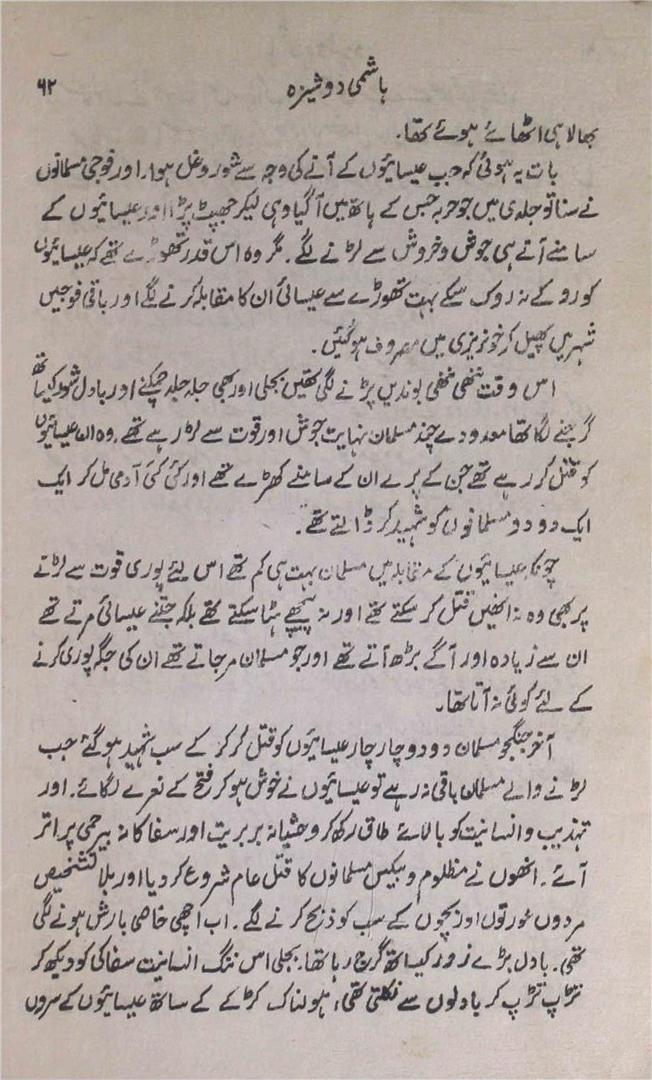 ہاشمی دوشیزہ
۶۲
بھالا ہی اٹھائے ہوئے تھا۔
بات یہ ہوئی کہ جب عیسائیوں کے آنے کی وجہ سے شور و غل ہوا۔ اور فوجی مسلمانوں
نے سنا تو جلدی میں جو حربہ جس کے ہاتھ میں آگیا وہی لیکر جھپٹ پڑا اور عیسائیوں کے
سامنے آتے ہی جوش و خروش سے لڑنے لگے۔ مگر وہ اس قدر تھوڑے تھے کہ عیسائیوں
کو روکے نہ روک سکے بہت تھوڑے سے عیسائی ان کا مقابلہ کرنے لگے اور باقی فوجیں
شہر میں پھیل کر خونریزی میں مصروف ہو گئیں۔
اس وقت ننھی ننھی بوندیں پڑنے لگی تھیں بجلی اور بھی جلد جلد چمکنے اور بادل شور کیساتھ
گرجنے لگا تھا معدودے چند مسلمان نہایت جوش اور قوت سے لڑ رہے تھے۔ وہ ان عیسائیوں
کو قتل کر رہے تھے جن کے پرے ان کے سامنے کھڑے تھے اور کئی کئی آدمی مل کر ایک
ایک دو دو مسلمانوں کو شہید کر ڈالتے تھے۔
چونکہ عیسائیوں کے مقابلہ میں مسلمان بہت ہی کم تھے اس لئے پوری قوت سے لڑنے
پر بھی وہ نہ انھیں قتل کر سکتے تھے اور نہ پیچھے ہٹا سکتے تھے بلکہ جتنے عیسائی مرتے تھے
ان سے زیادہ اور آگے بڑھ آتے تھے اور جو مسلمان مر جاتے تھے ان کی جگہ پوری کرنے
کے لئے کوئی نہ آتا تھا۔
آخر جنگجو مسلمان دو دو چار چار عیسائیوں کو قتل کر کر کے سب شہید ہو گئے جب
لڑنے والے مسلمان باقی نہ رہے تو عیسائیوں نے خوش ہو کر فتح کے نعرے لگائے۔ اور
تہذیب و انسانیت کو بالائے طاق رکھ کر وحشیانہ بربریت اور سفاکانہ بیرحمی پر اتر
آئے۔ انھوں نے مظلوم و بیکس مسلمانوں کا قتل عام شروع کر دیا اور بلا تشخیص
مردوں عورتوں اور بچوں کے سب کو ذبح کرنے لگے۔ اب اچھی خاصی بارش ہونے لگی
تھی۔ بادل بڑے زور کیساتھ گرج رہا تھا۔ بجلی اس ننگ انسانیت سفاکی کو دیکھ کر
تڑپ تڑپ کر بادلوں سے نکلتی تھی، ہولناک کڑاکے کے ساتھ عیسائیوں کے سروں